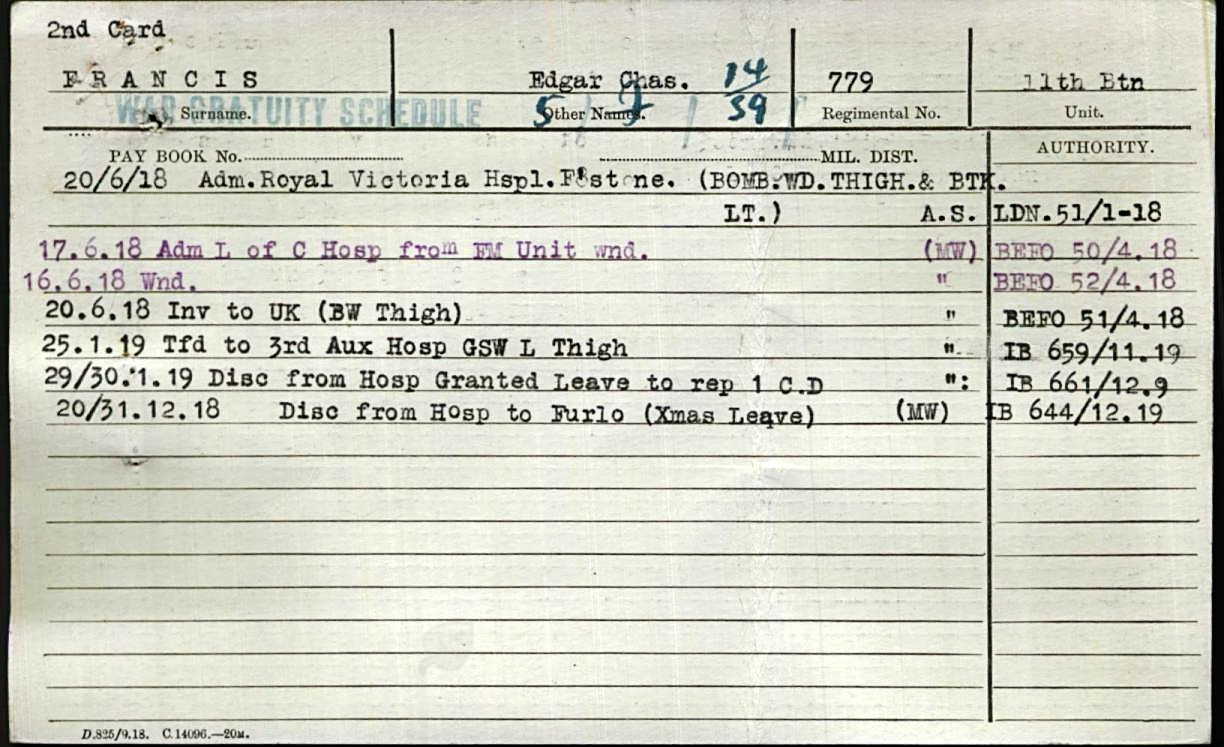 2nd Card
FRANCIS Edgar Chas. 14/39 779 11th Btn
WAR GRATUITY SCHEDULE 5
Surname. Other Names. Regimental No. Unit.
PAY BOOK No. MIL. DIST. AUTHORITY.
20/6/18 Adm.Royal Victoria Hspl.F'stone. (BOMB.WD.THIGH.& BTK.
LT.) A.S. LDN.51/1-18
17.6.18 Adm L of C Hosp from FM Unit wnd. (MW) BEFO 50/4.18
16.6.18 Wnd. " BEFO 52/4.18
20.6.18 Inv to UK (BW Thigh) " BEFO 51/4.18
25.1.19 Tfd to 3rd Aux Hosp GSW L Thigh " IB 659/11.19
29/30.1.19 Disc from Hosp Granted Leave to rep 1 C.D ": IB 661/12.9
20/31.12.18 Disc from Hosp to Furlo (Xmas Leave) (MW) IB 644/12.19
D.825/9.18. C.14096.—20M.